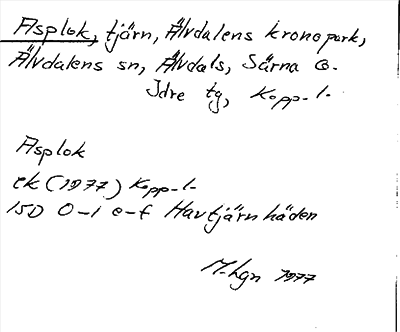 Asplok, tjärn, Älvdalens kronopark,
Älvdalens sn, Älvdals, Särna o.
Idre tg, Kopp-l-
Asplok
ek (1977) Kopp-l-
15D 0-1 e-f Havtjärnhäden
M-hgn 1977